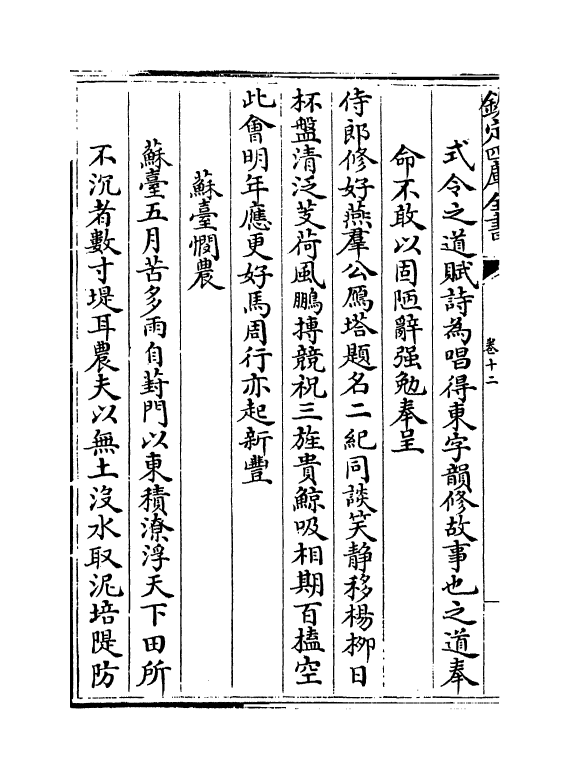 欽定四庫全書
卷十二
式令之道賦詩為唱得東字韻修故事也之道奉
命不敢以固陋辭强勉奉呈
侍郎修好燕羣公鴈塔題名二紀同談笑静移楊栁日
杯盤清泛芰荷風鵬摶競祝三旌貴鯨吸相期百榼空
此㑹明年應更好馬周行亦起新豐
蘇臺憫農
蘇臺五月苦多雨自葑門以東積潦浮天下田所
不沉者數寸堤耳農夫以無土沒水取泥培隄防